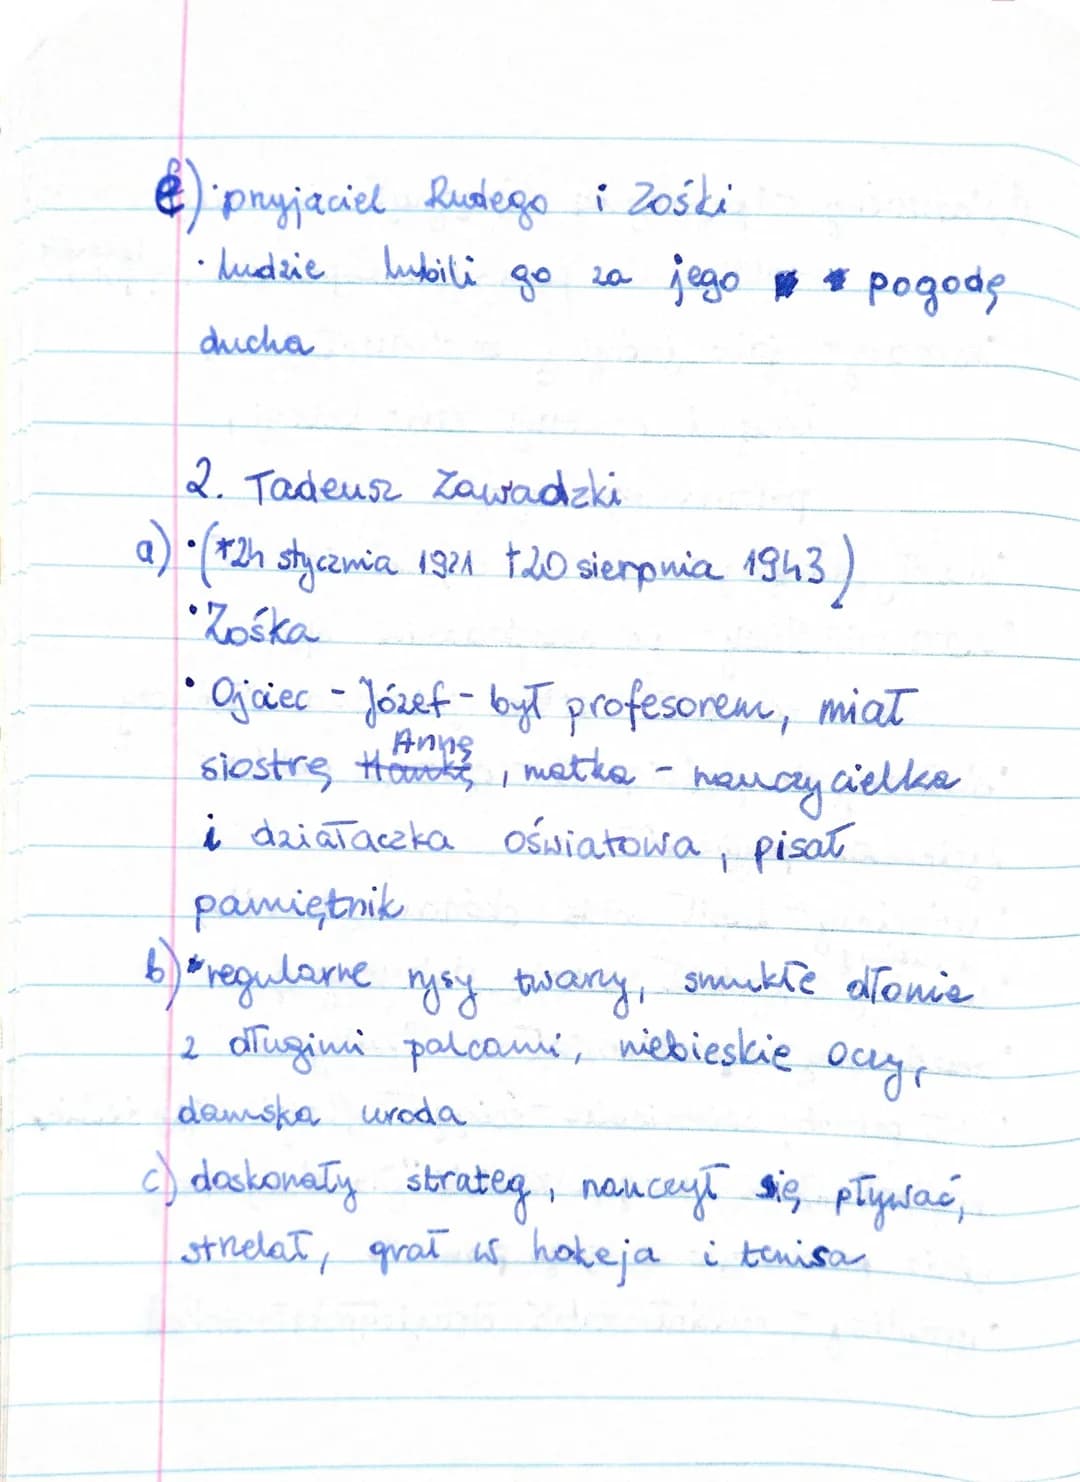 e) · przyjaciel Rudego i Zośki
· ludzie lubili go za jego pogodę
ducha
2. Tadeusz Zawadzki
a) · (*24 stycznia 1921 †20 sierpnia 1943)
· Zośka
· Ojciec - Józef - był profesorem, miał
Annę
siostrę Hankę, matka - nauczycielka
i działaczka oświatowa, pisał
pamiętnik
b) · regularne rysy twarzy, smukłe dłonie
z długimi palcami, niebieskie oczy,
damska uroda
c) doskonały strateg, nauczył się pływać,
strzelał, grał w hokeja i tenisa